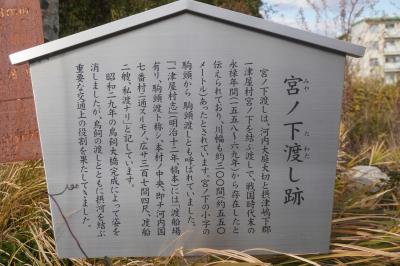 宮ノ下渡し跡
みや
した
わた
宮ノ下渡しは、河内大庭大切と摂津嶋下郡
一津屋村宮ノ下を結ぶ渡しで、戦国時代末の
永禄年間(一五五八~六九年)から存在したと
伝えられており、川幅も約三〇〇間(約五五〇
メートル)あったとされています。宮ノ下の小字の
駒頭から駒頭渡しとも呼ばれていました。
「一津屋村志」(明治十二年・稿本)には、「渡船場
有り、本村渡ト称シ、本村ノ中央、即チ河内国
七番村ニ通スルモノ、広サ三百七間四尺、渡船
二艘、私渡ナリ」と記しています。
昭和二九年の鳥飼大橋完成によって姿を
消しましたが、鳥飼の渡しとともに摂河を結ぶ
重要な交通上の役割を果たしていました。